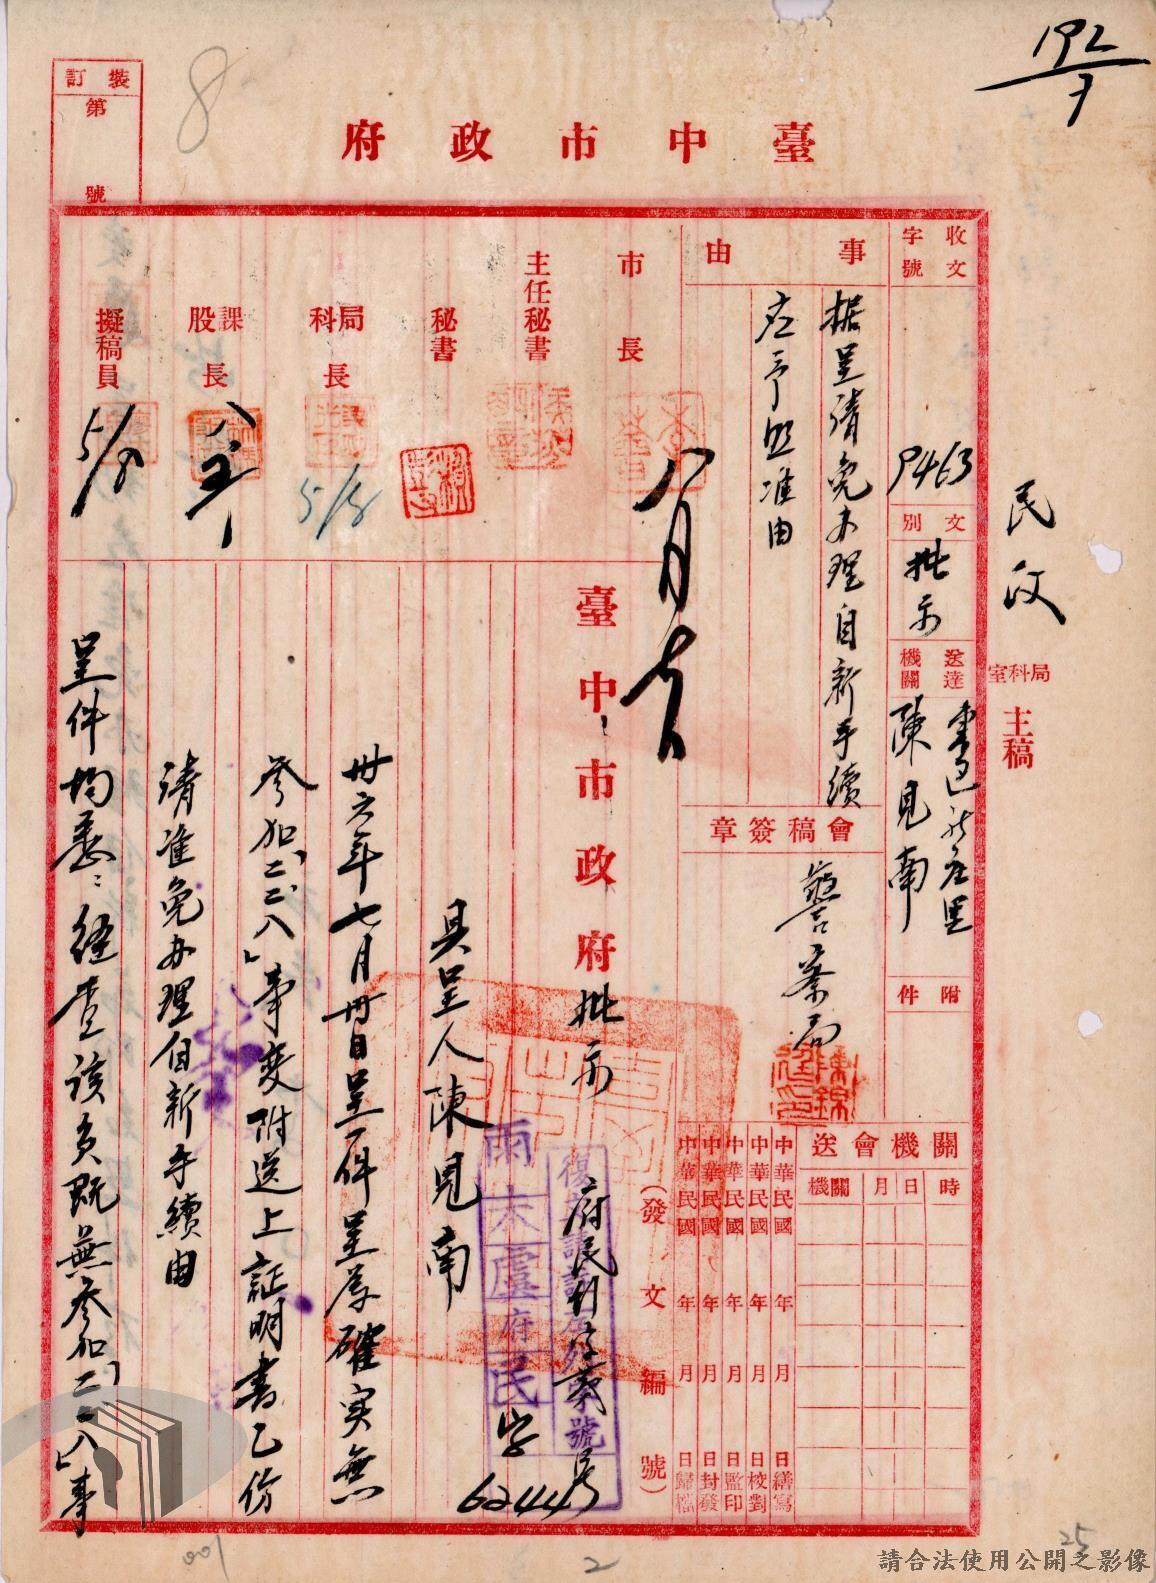 臺中市政府
裝訂
第 號
8
192
7
民政
局科室
主稿
收文
字號
9463
文別
批示
送達
機關
陳見南
附件
事由
据呈請免办理自新手續
应予照准由
會稿簽章
警察局
關機會送
機關 月 日 時
中華民國 年 月 日繕寫
中華民國 年 月 日校對
中華民國 年 月 日監印
中華民國 年 月 日封發
中華民國 年 月 日歸檔
(發文編號)
市長
主任秘書
秘書
局科長
5/8
課股長
擬稿員
5/8
八月
臺中市政府批示
具呈人陳見南
府民
字
6244
卅六年七月卅日呈一件呈為確实無
參加「二二八」事变附送上証明書乙份
請准免办理自新手續由
呈件均悉:経查該員既無參加「二二八」事
001
2
25
請合法使用公開之影像